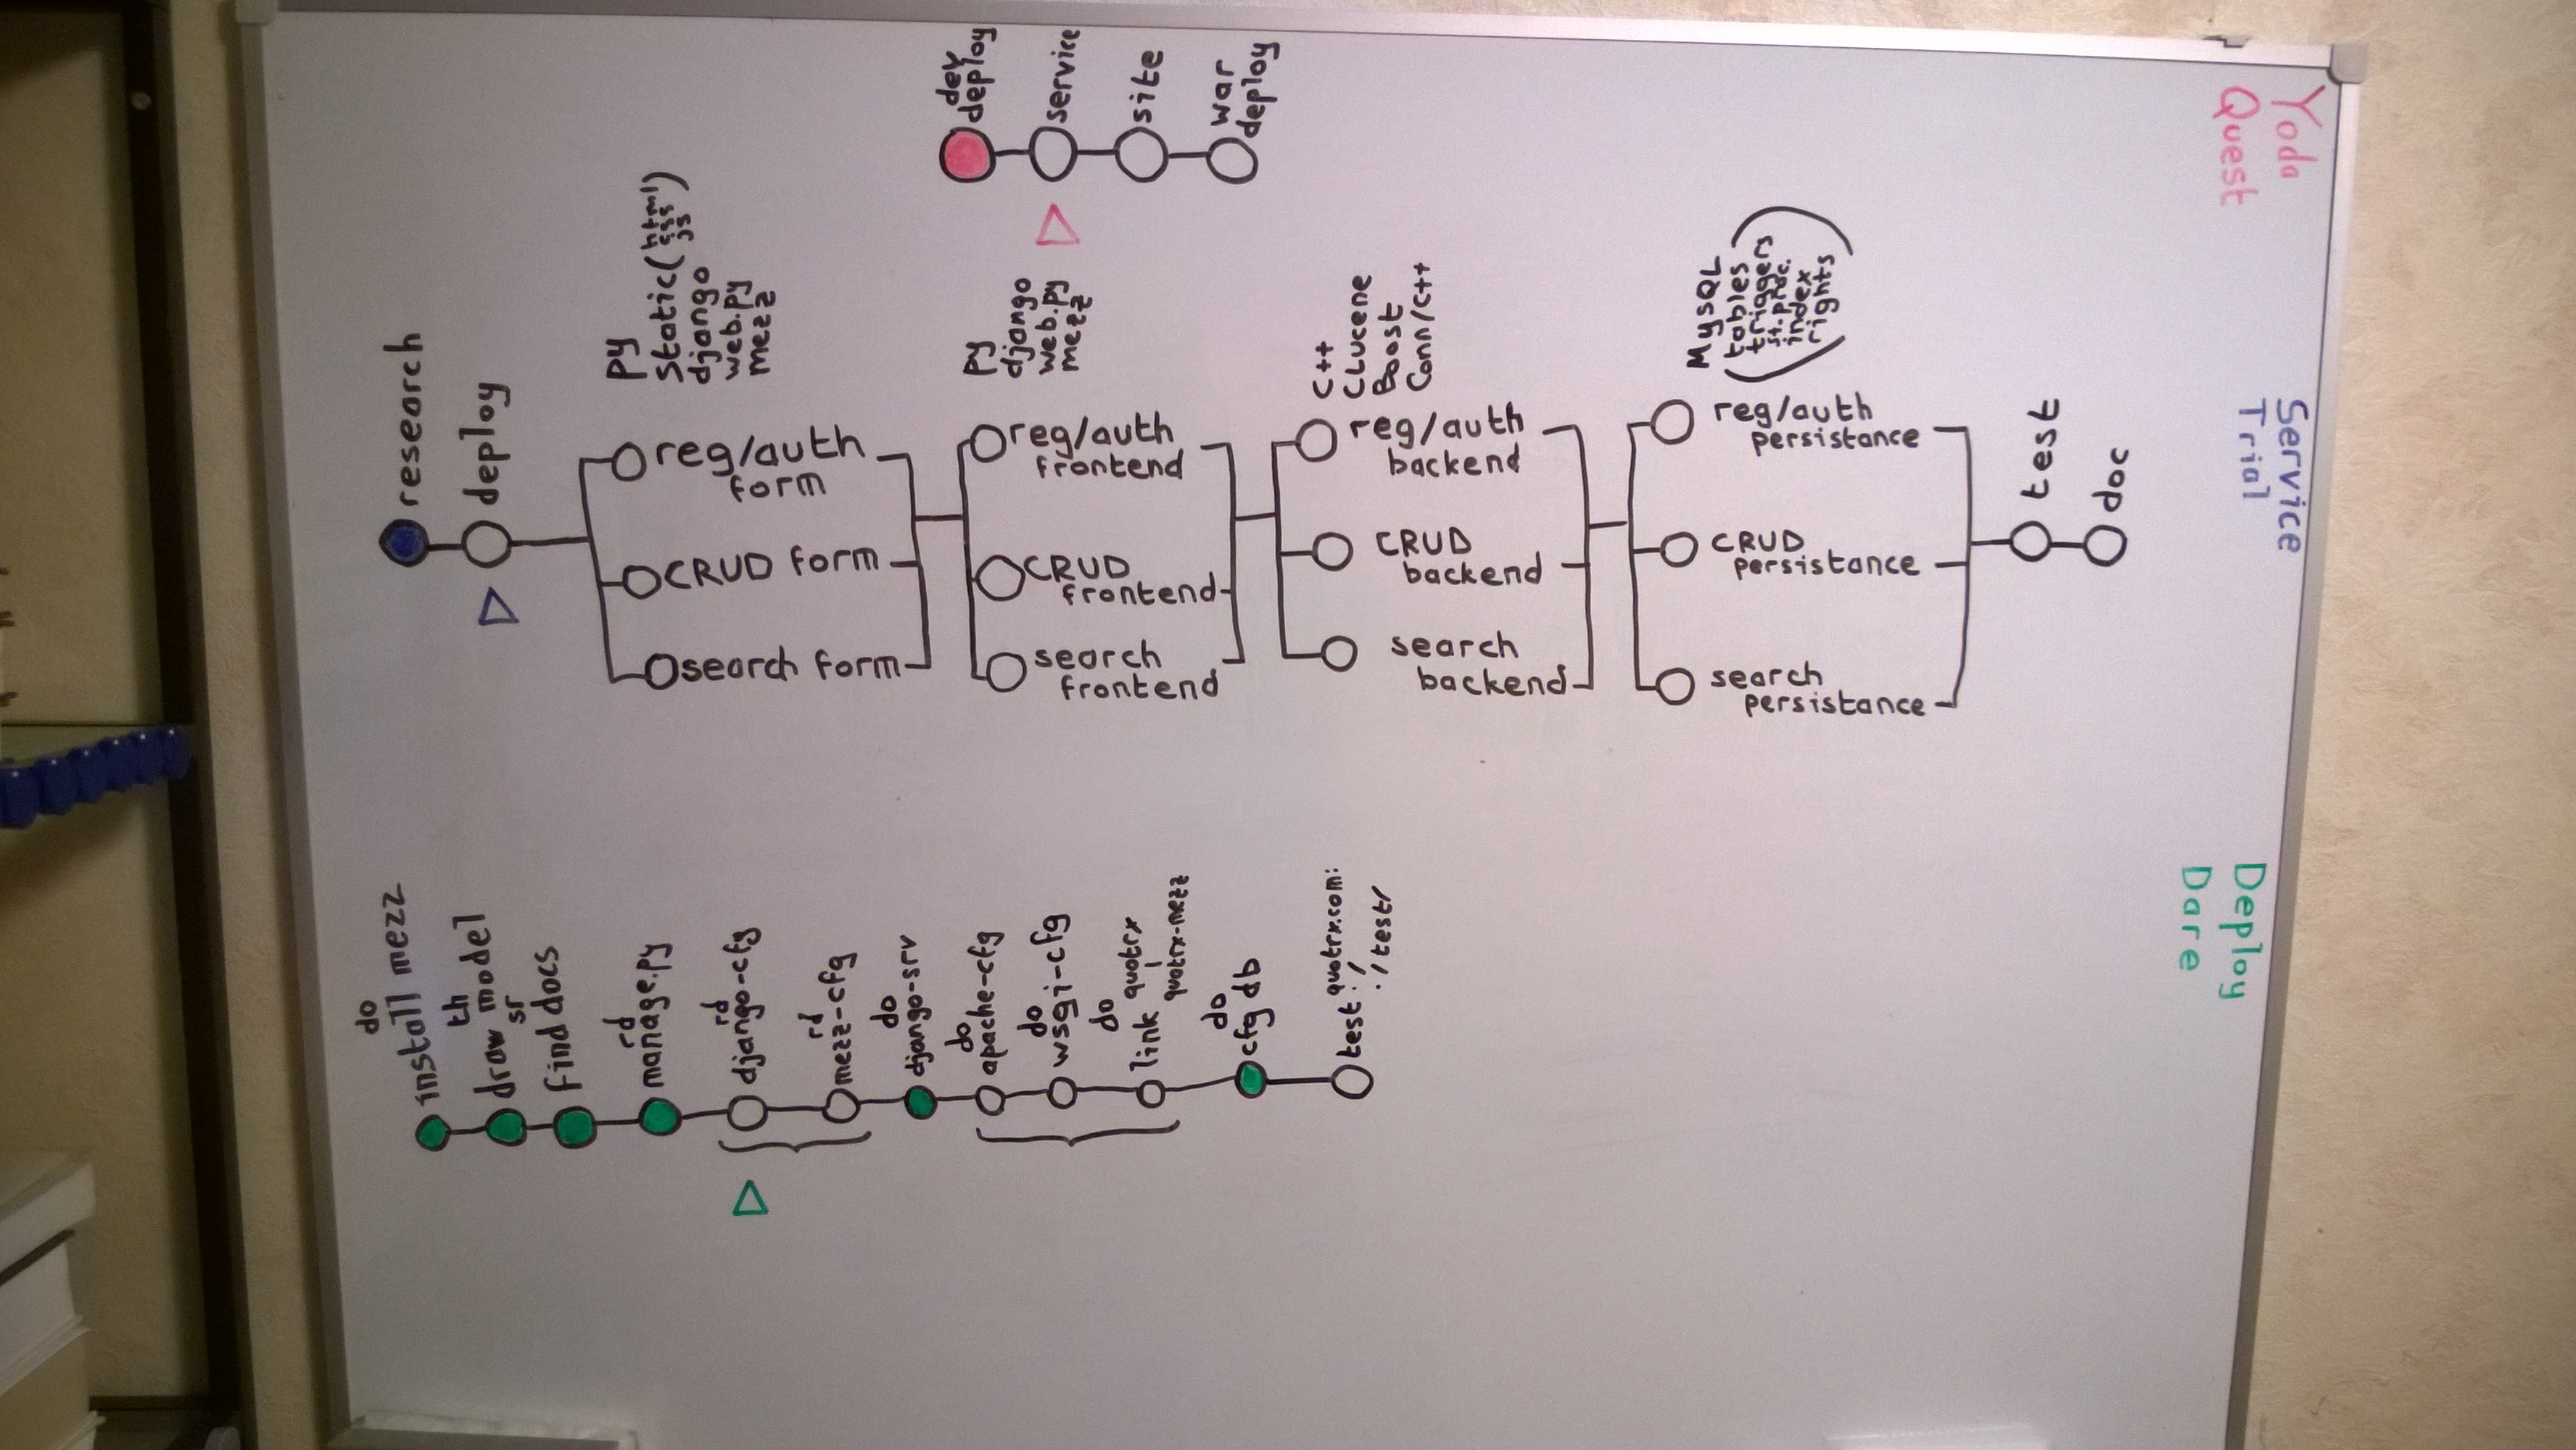 Yoda
Quest
dev
deploy
service
site
war
deploy
Service
Trial
research
deploy
py
static(html
css
js)
django
web.py
mezz
reg/auth
form
CRUD form
search form
py
django
web.py
mezz
reg/auth
frontend
CRUD
frontend
search
frontend
C++
CLucene
Boost
Conn/C++
reg/auth
backend
CRUD
backend
search
backend
MySQL
(tables
triggers
st.proc.
index
rights)
reg/auth
persistance
CRUD
persistance
search
persistance
test
doc
Deploy
Dare
do
install mezz
th
draw model
sr
find docs
rd
manage.py
rd
django-cfg
rd
mezz-cfg
do
django-srv
do
apache-cfg
do
wsgi-cfg
do
link quotrx
quotrx-mezz
do
cfg db
test quotrx.com:
:/
:/testr